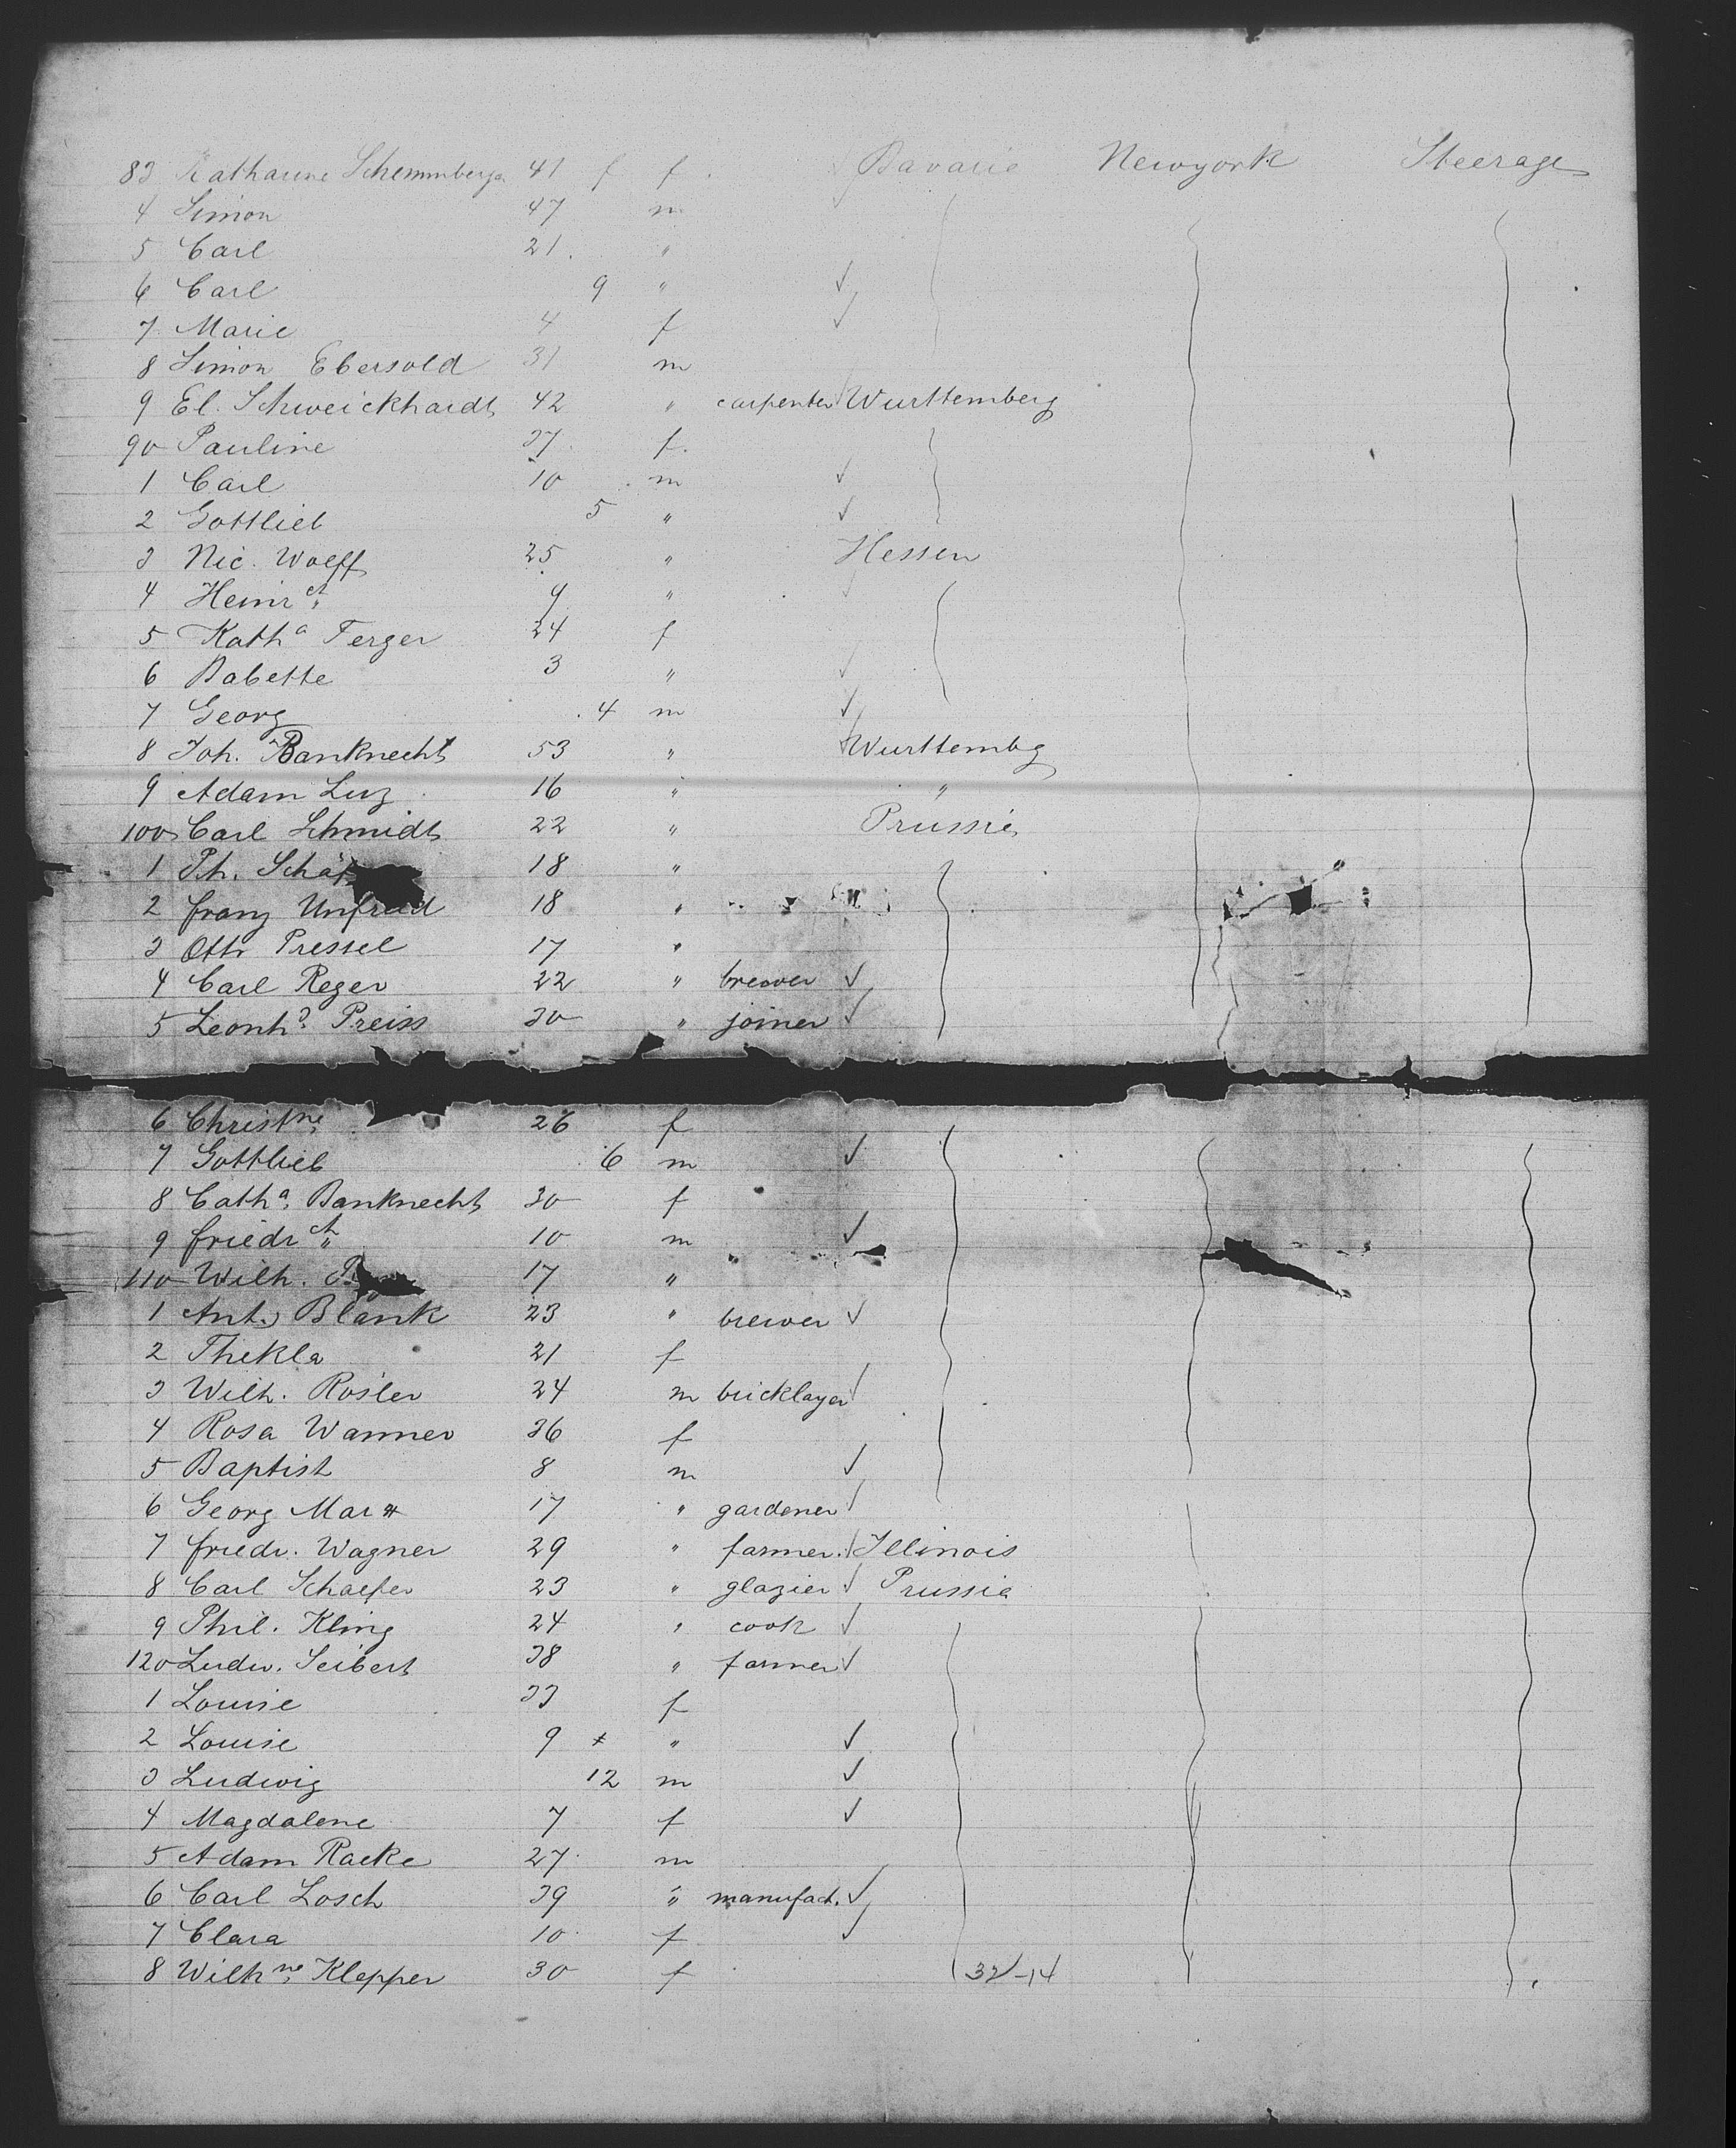 83 Katharine Schemmberger 41 f f Bavaria Newyork Steerage
4 Simon 47 m
5 Carl 21 "
6 Carl 9 "
7 Marie 4 f
8 Simon Ebersold 31 m
9 El. Schweickhardt 42 " carpenter Wurttemberg
90 Pauline 37 f
1 Carl 10 m
2 Gottlieb 5 "
3 Nic. Wolff 25 " Hessen
4 Heinrch 9 "
5 Katha Ferger 24 f
6 Babette 3 "
7 Georg 4 m
8 Joh. Banknecht 53 " Wurttembg
9 Adam Luz 16 " "
100 Carl Schmidt 22 " Prussia
1 Ph. 18 "
2 Franz Unfried 18 "
3 Otto Pressel 17 "
4 Carl Reger 22 " brewer
5 Leonhd. Preiss 30 " joiner
6 Christne 26 f
7 Gottlieb 6 m
8 Catha. Banknecht 30 f
9 Friedrch 10 m
110 Wilh. 17 "
1 Ant. Blank 23 " brewer
2 Thekla 21 f
3 Wilh. Rosler 24 m bricklayer
4 Rosa Wanner 36 f
5 Baptist 8 m
6 Georg Marx 17 " gardener
7 Friedr. Wagner 29 " farmer. Illinois
8 Carl Schaefer 23 " glazier Prussia
9 Phil. Kling 24 " cook
120 Ludw. Seibert 38 " farmer
1 Louise 33 f
2 Louise 9 "
3 Ludwig 12 m
4 Magdalene 7 f
5 Adam Racke 27 m
6 Carl Losch 39 " manufact.
7 Clara 10 f
8 Wilhne. Klepper 30 f 32-14